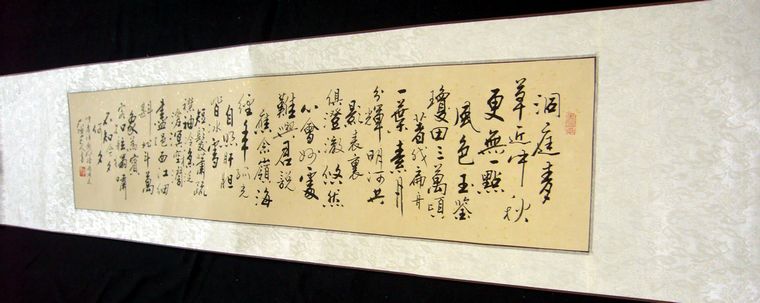 洞庭青
草近中秋
更無一點
風色玉鑒
瓊田三萬頃
著我扁舟
一葉素月
分輝明河共
影表裏
俱澄澈悠然
心會妙處
難與君說
應念嶺海
經年孤光
自照肝膽
皆冰雪
短髮蕭疏
襟袖冷穩泛
滄溟空闊
盡挹西江細
斟北斗萬
象為賓
客扣舷獨嘯
不知今夕
何夕